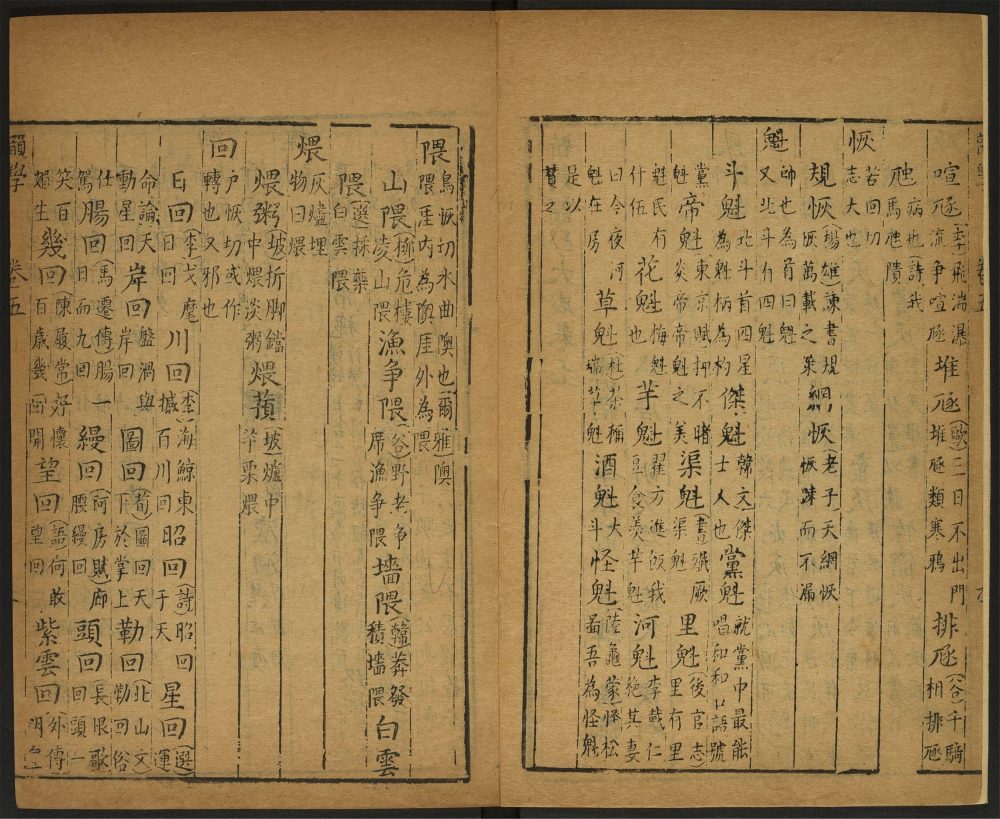 喧豗(李)飛湍瀑流争喧豗堆豗(歐)二日不出門堆豗類寒鴉排豗(谷)千騎相排豗
虺病也(詩)我馬虺隤
恢苦回切志大也
規恢(楊雄)諫書規恢萬載之策網恢(老子)天網恢恢踈而不漏
魁帥也為首曰魁又北斗有四魁
斗魁北斗首四星為魁柄為杓傑魁(韓文)傑魁士人也黨魁就黨中最能唱和和口語號
黨魁帝魁(東京賦)抑不睹炎帝帝魁之美渠魁(書)殲厥渠魁里魁(後官志)里有里
魁民有什伍花魁梅魁花也芋魁(翟方進)飯我豆食羹芋魁河魁李戴仁絶其妻
曰今夜河魁在房草魁杜茶稱瑞草魁酒魁大斗怪魁(陸龜蒙)怪松啚吾為怪魁
是以贊之
隈烏恢切水曲隩也(爾雅)隩隈厓内為隩厓外為隈
山隈(柳)危樓凌山隈漁争隈(谷)野老争席漁争隈墻隈(韓)莽發積墻隈白雲
隈(選)採藥白雲隈
煨灰燼埋物曰煨
煨粥(坡)折脚鐺中煨淡粥煨蘋(坡)爐中芋栗煨
回户恢切或作轉也又邪也
日回(李)戈麾日回川回(李)海鯨東揻百川回昭回(詩)昭回于天星回(選)運
命論天動星回岸回盤渦與岸回圖回(荀)圖回天下於掌上勒回(北山文)勒回俗
仕駕腸回(馬遷傳)腸一日而九回縵回(阿房賦)廊腰縵回頭回(長恨歌)回頭一
笑百媚生幾回(陳履常)好懷百歲幾回開望回(語)何敢望回紫雲回(外傳)明皇
韻學 卷五